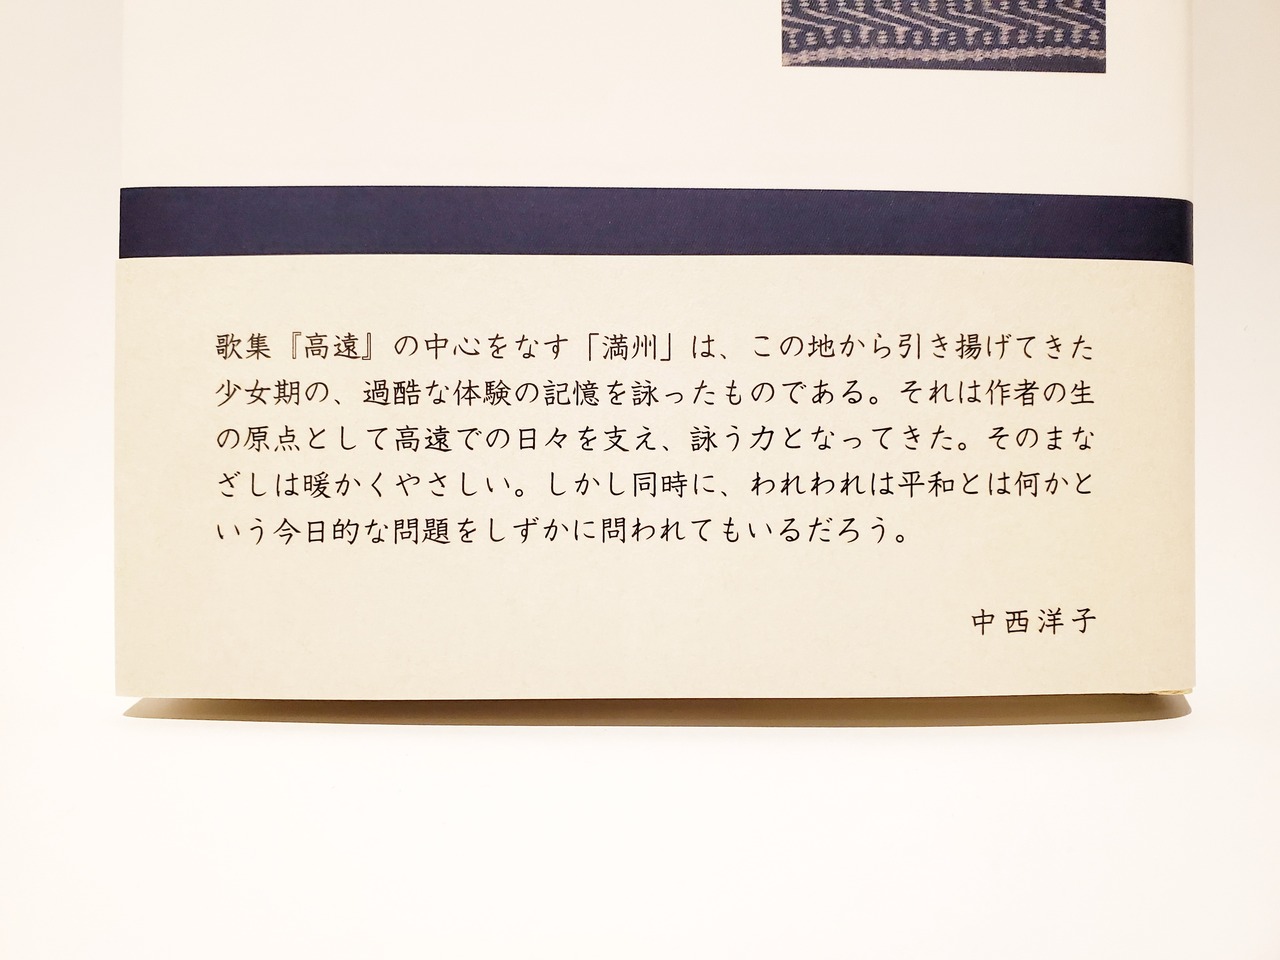 歌集『高遠』の中心をなす「満州」は、この地から引き揚げてきた
少女期の、過酷な体験の記憶を詠ったものである。それは作者の生
の原点として高遠での日々を支え、詠う力となってきた。そのまな
ざしは暖かくやさしい。しかし同時に、われわれは平和とは何かと
いう今日的な問題をしずかに問われてもいるだろう。
中西洋子